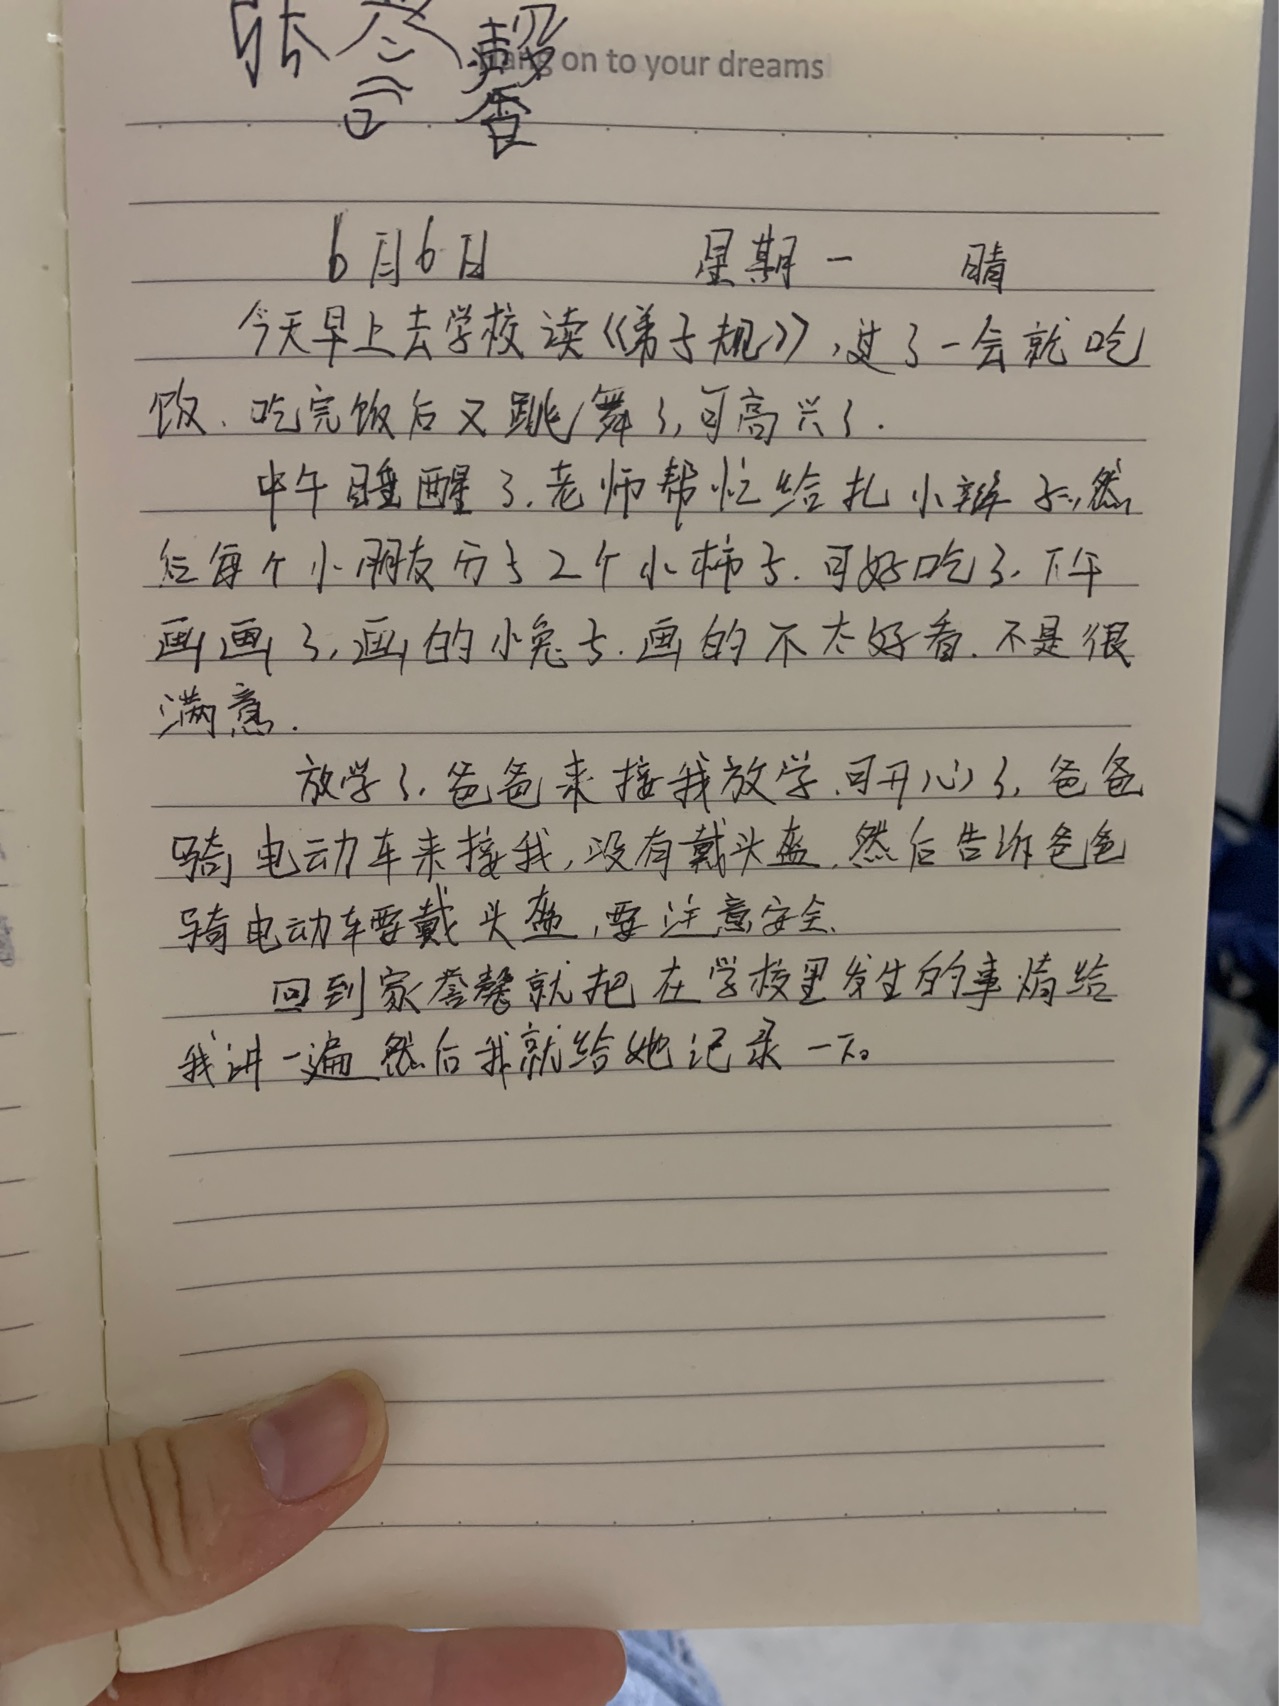 张誉馨
hang on to your dreams
6月6日 星期一 晴
今天早上去学校读《弟子规》,过了一会就吃
饭、吃完饭后又跳舞了,可高兴了.
中午睡醒了.老师帮忙给扎小辫子,然
后每个小朋友分了2个小柿子.可好吃了.下午
画画了,画的小兔子.画的不太好看.不是很
满意.
放学了.爸爸来接我放学.可开心了,爸爸
骑电动车来接我,没有戴头盔.然后告诉爸爸
骑电动车要戴头盔,要注意安全.
回到家誉馨就把在学校里发生的事情给
我讲一遍然后我就给她记录一下。